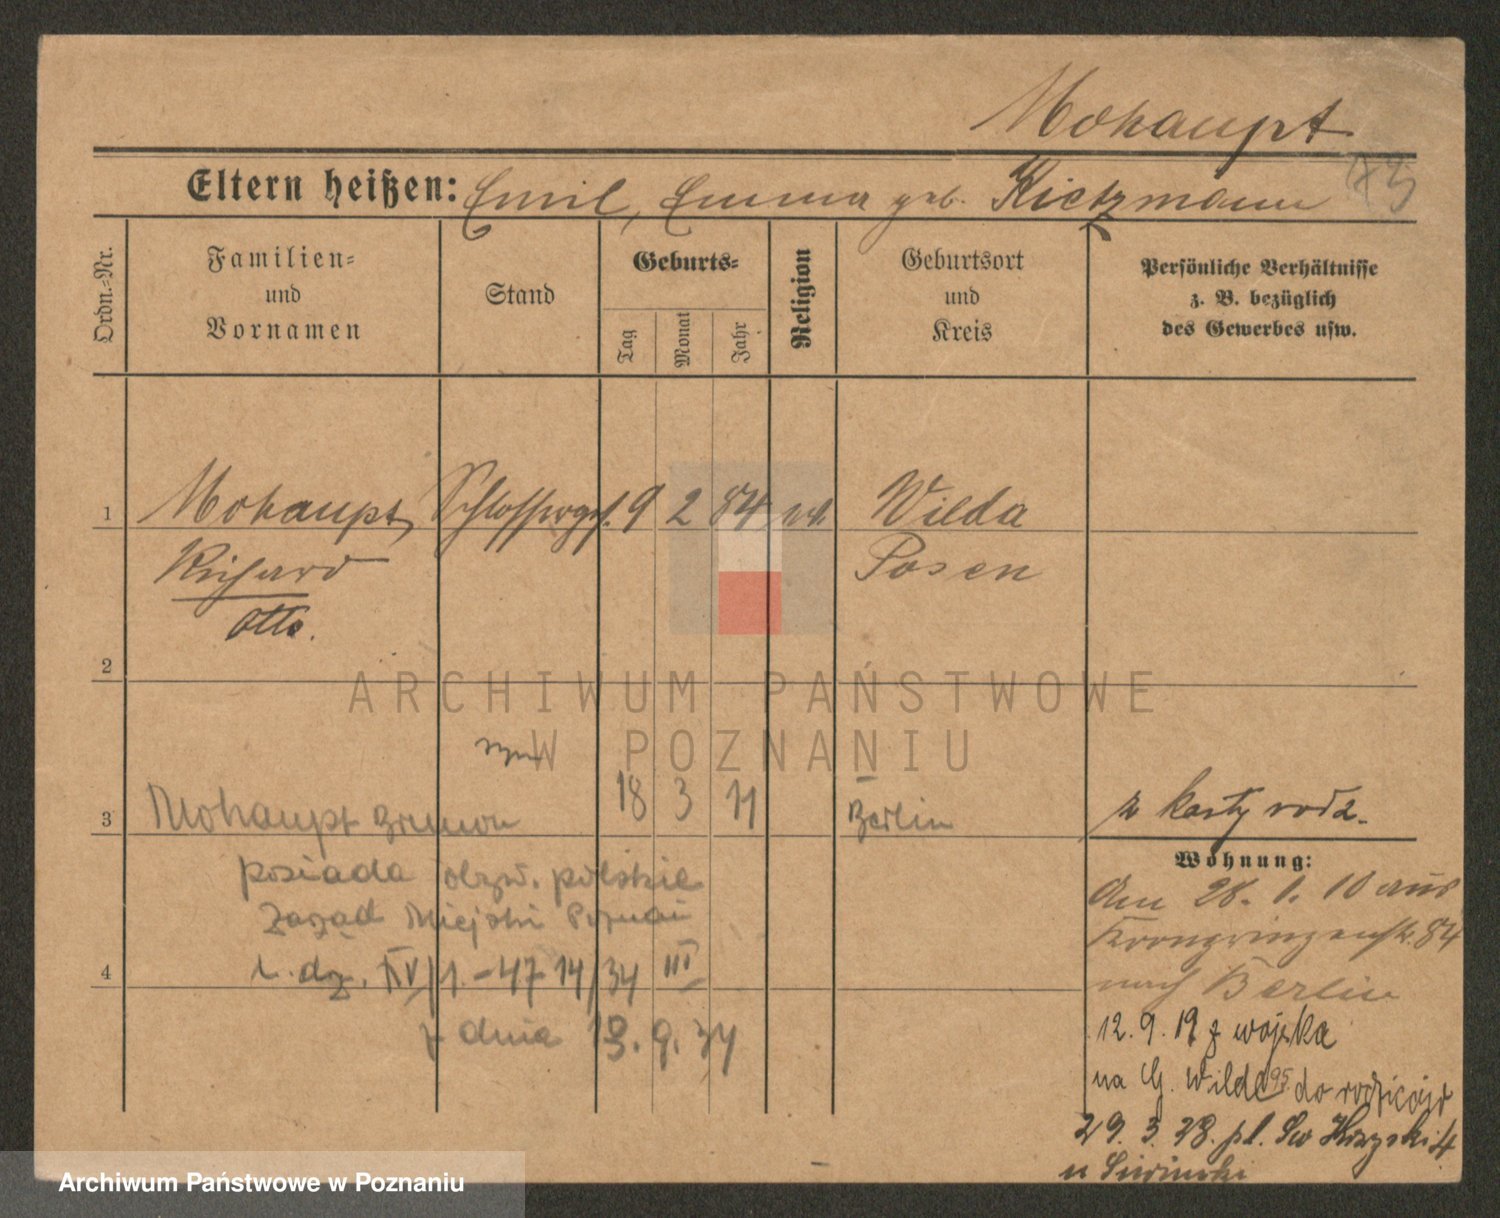 Mohaupt
Eltern heißen: Emil, Emma geb. Kietzmann
Ordn.-Nr.
Familien-
und
Vornamen
Stand
Geburts-
Tag
Monat
Jahr
Religion
Geburtsort
und
Kreis
Persönliche Verhältnisse
z. B. bezüglich
des Gewerbes usw.
1 Mohaupt, Schlosserges. 9 2 84 Wilda
Richard Posen
Otto.
2
syn
3 Mohaupt Bruno 18 3 11 Berlin z karty rodz.
posiada obyw. polskie
Zarząd Miejski Poznań
4 L. dz. XV/1.-47 14/34 III
z dnia 13. 9. 34
Wohnung:
Am 28. 1. 10 aus
Kronprinzenstr. 84
nach Berlin
12. 9. 19 z wojska
na G. Wilda 95 do rodziców
29. 3. 28. pl. Św Krzyski 4
u
ARCHIWUM PAŃSTWOWE
W POZNANIU
Archiwum Państwowe w Poznaniu